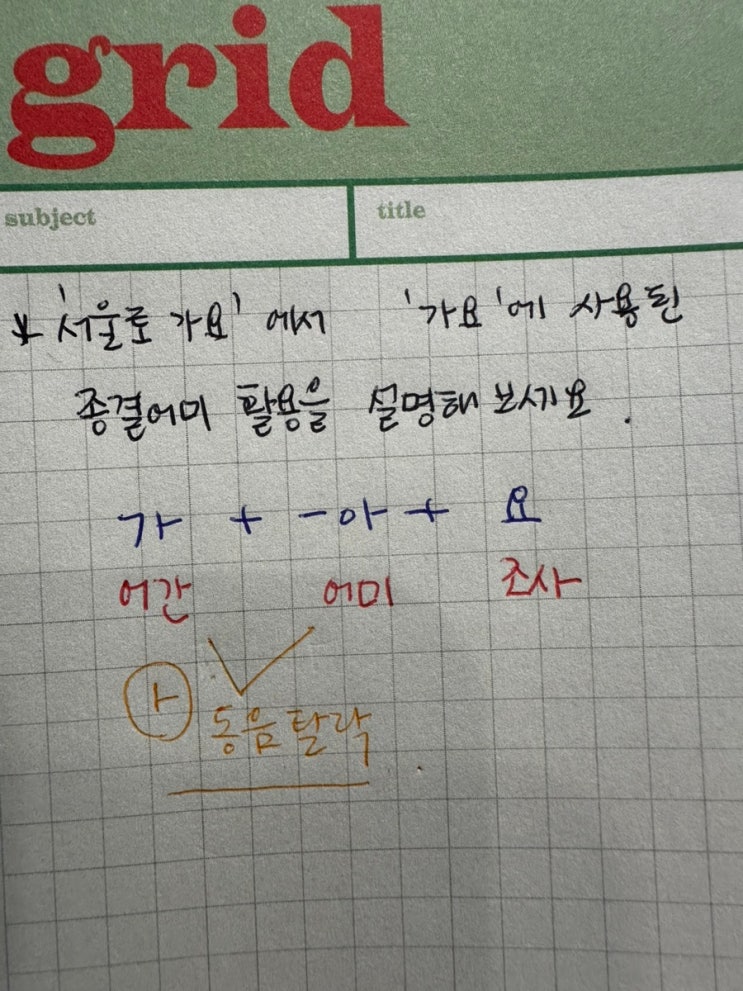 grid
subject title
* '서울로 가요' 에서 '가요'에 사용된
종결어미 활용을 설명해 보시오.
가 + -아 + 요
어간 어미 조사
ㅏ 동음 탈락